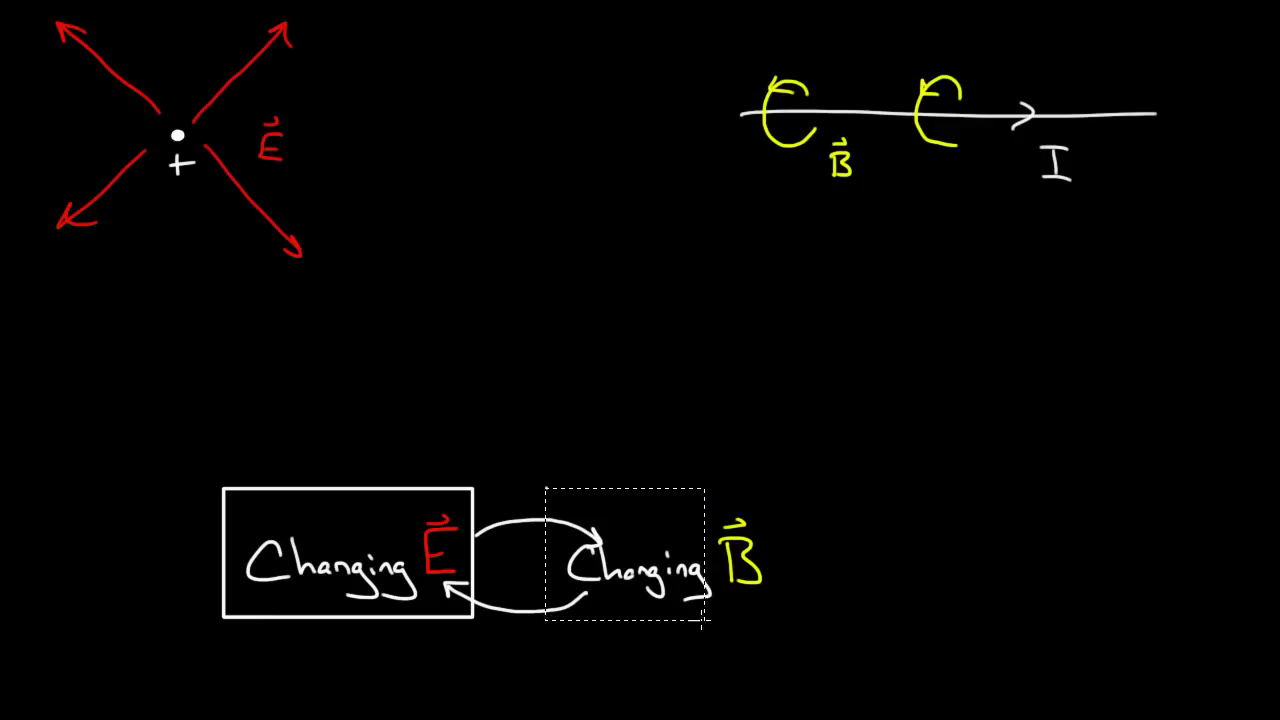 +
E⃗
B⃗
I
Changing E⃗
Changing B⃗